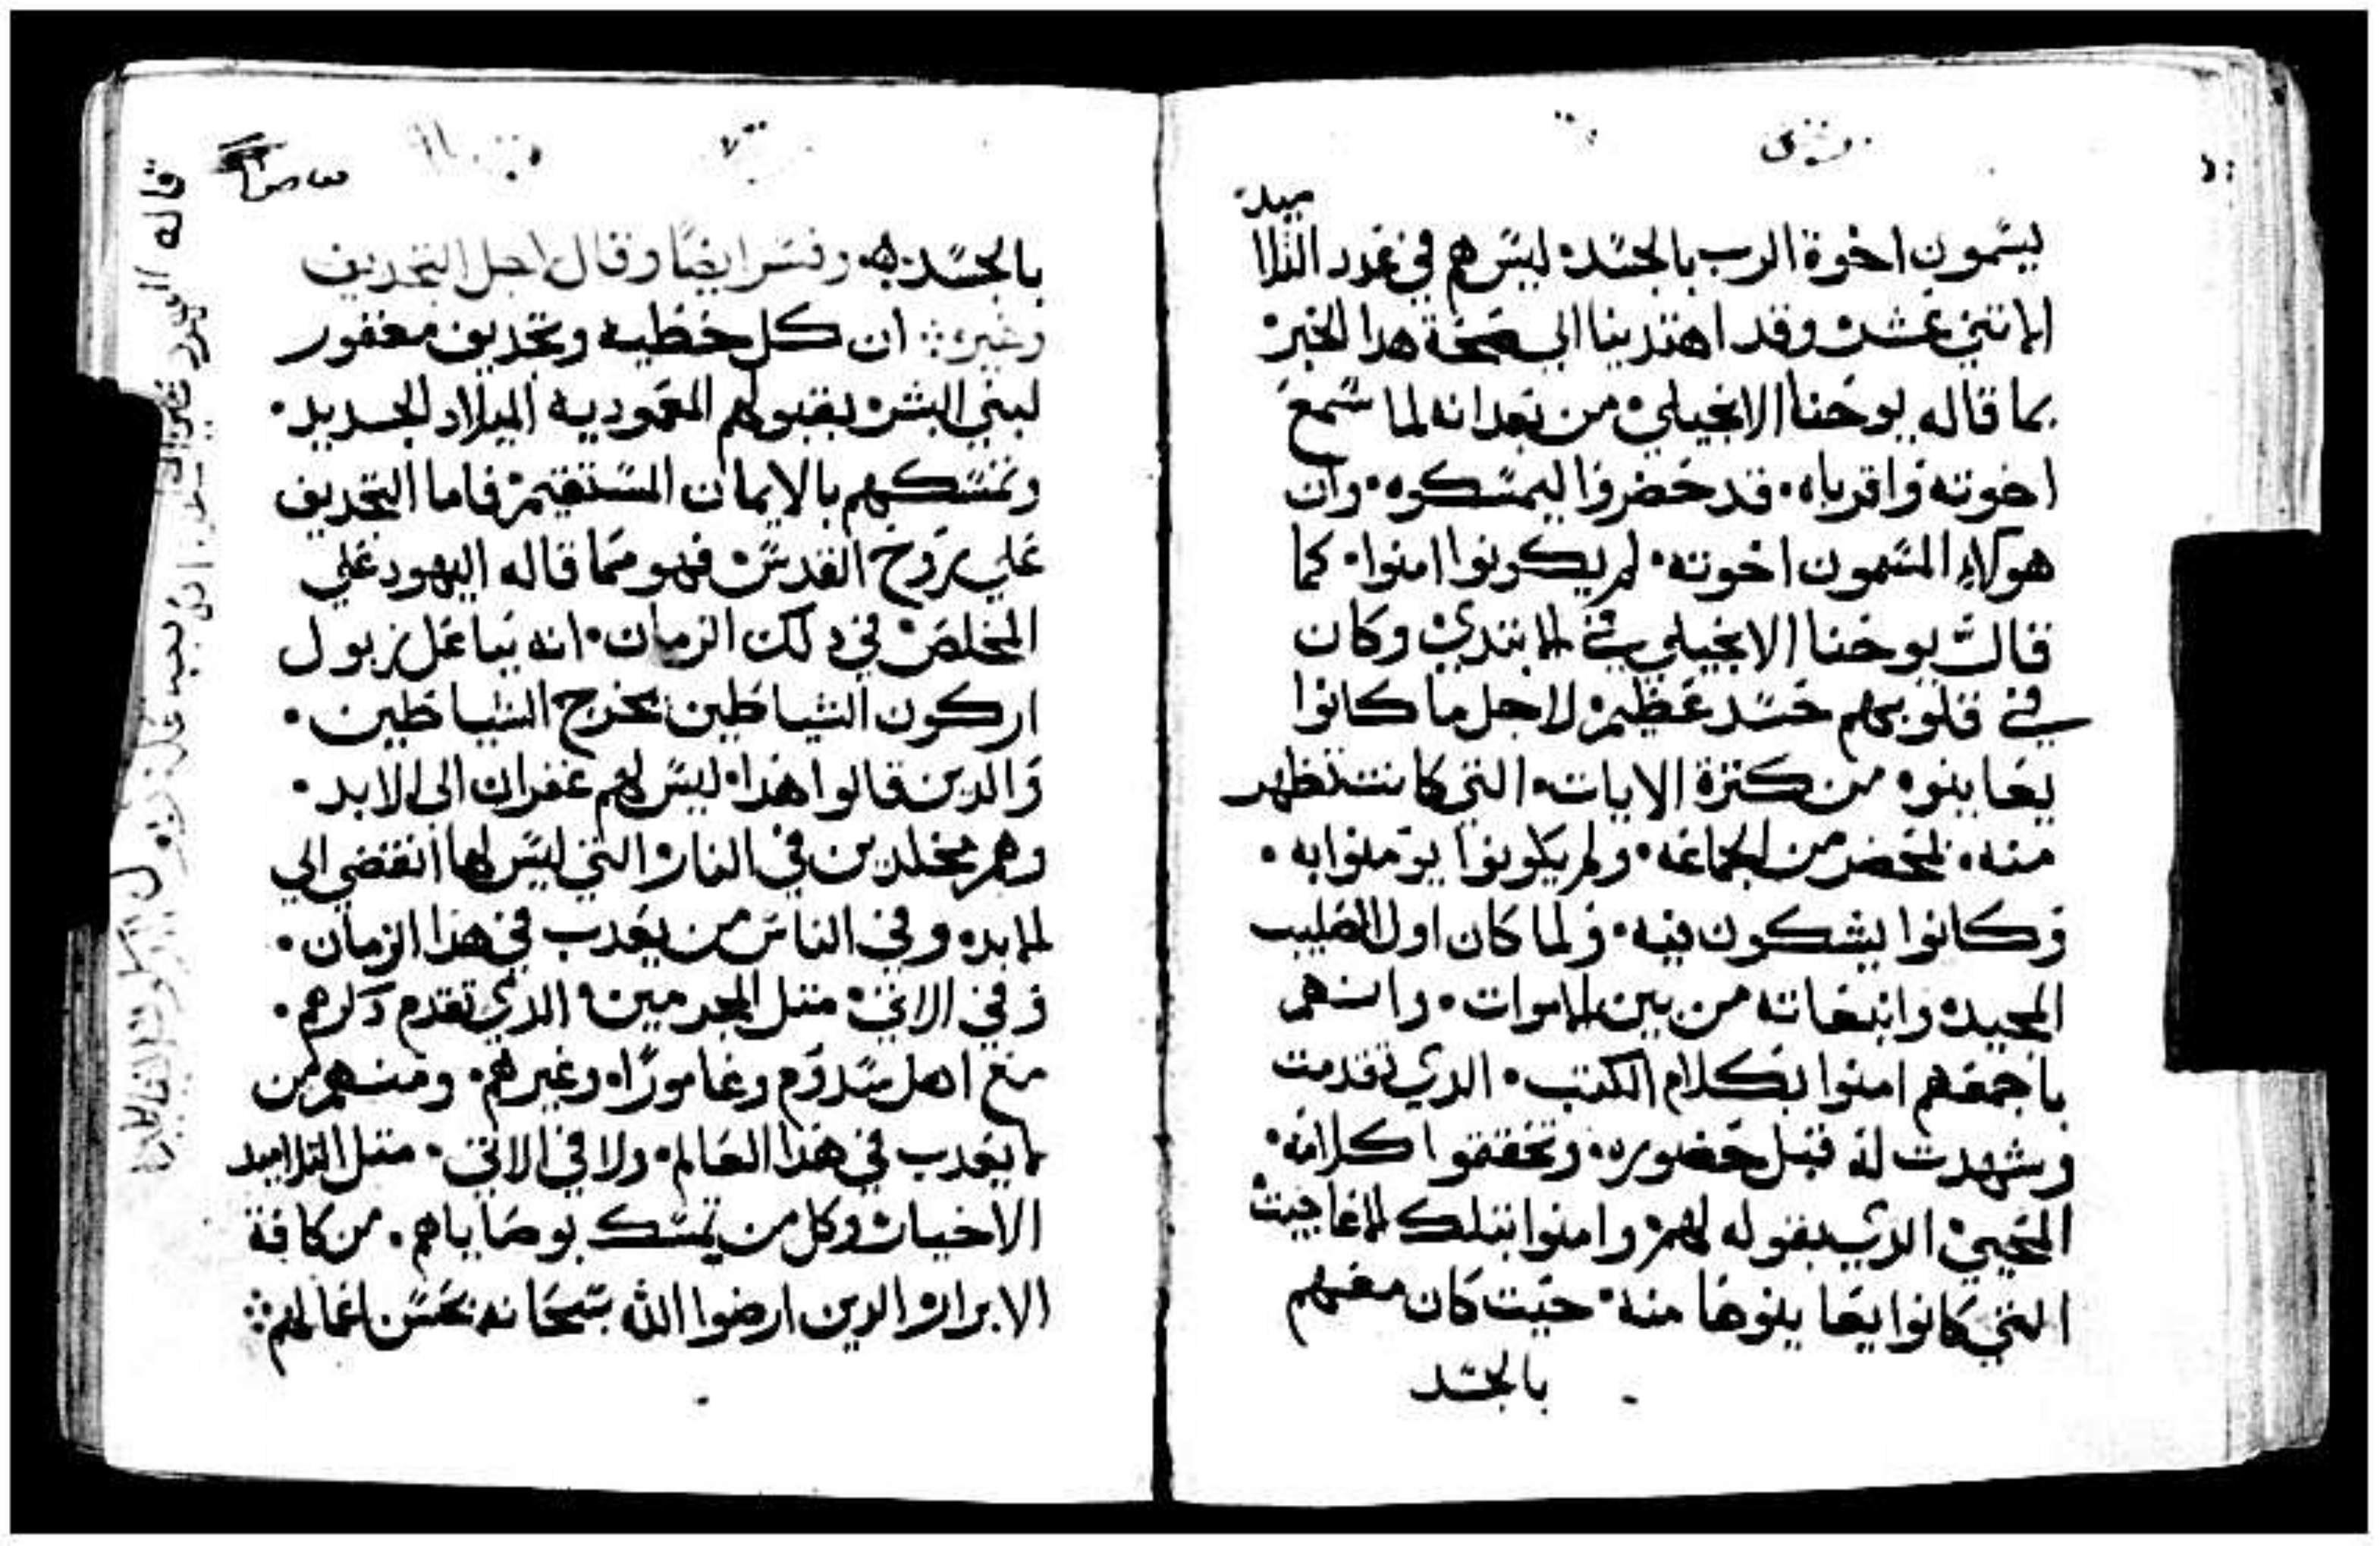 ميد
ليسمون اخوة الرب بالجسد ليس هم في عدد التلا
الاتني عشر وقد اهتدينا الي صحة هدا الخبر
بما قاله يوحنا الانجيلي من بعد انه لما سمع
اخوته واقرباه قد حضروا ليمسكوه وان
هولاء المسمون اخوته لم يكونوا امنوا كما
قال يوحنا الانجيلي في الابتدي وكان
في قلوبهم حسد عظيم لاجل ما كانوا
يعاينوه من كترة الايات التي كانت تظهر
منه بمحضر من الجماعه ولم يكونوا يومنوا به
وكانوا يشكون فيه ولما كان اول الصليب
المجيد وانبعاته من بين الاموات وانهم
باجمعهم امنوا بكلام الكتب الدي تقدمت
وشهدت له قبل حضوره وتحققوا كلامه
المحيي الدي يقوله لهم وامنوا بتلك الاعاجيب
التي كانوا يعاينوها منه حيت كان معهم
بالجسد
بالجسد وفسر ايضا وقال اجل التجديف
وغيره ان كل خطيه وتجديف مغفور
لبني البشر بقبولهم المعموديه الميلاد الجديد
وتمسكهم بالايمان المستقيم فاما التجديف
علي روح القدس فهو مما قاله اليهود علي
المخلص في دلك الزمان انه بباعل زبول
اركون الشياطين يخرج الشياطين
والدين قالوا هدا ليس لهم غفران الي الابد
وهم مخلدين في النار التي ليس لها انقضي الي
الابد وفي الناس من يعدب في هدا الزمان
وفي الاتي متل المجرمين الدي تقدم دكرهم
مع اهل سدوم وغامورا وغيرهم ومنهم من
لا يعدب في هدا العالم ولا في الاتي متل التلاميد
الاخيار وكل من تمسك بوصاياهم من كافة
الابرار والدين ارضوا الله سبحانه بحسن اعمالهم
قاله اليهود